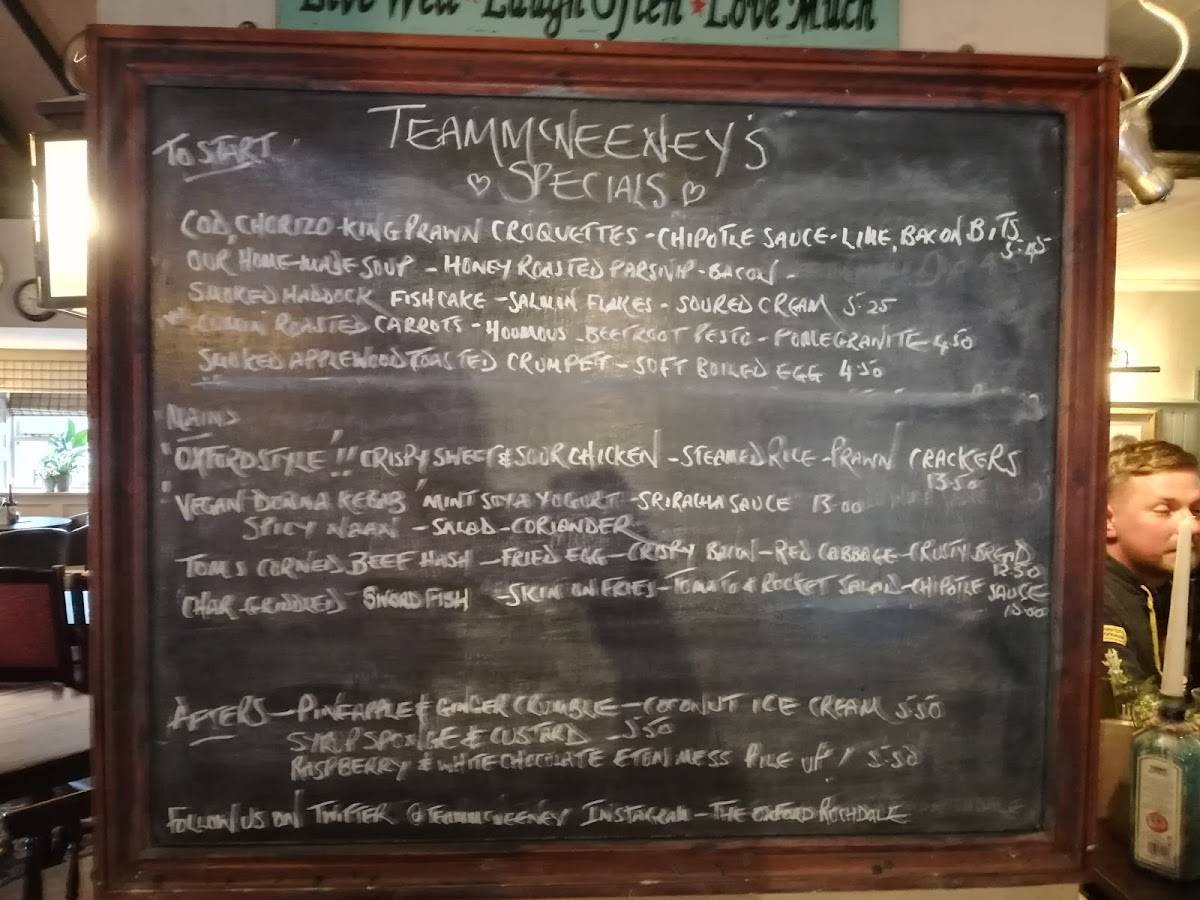 Live Well * Laugh Often * Love Much
TEAMMCNEENEY'S
TO START
♡ SPECIALS ♡
COD, CHORIZO - KING PRAWN CROQUETTES - CHIPOTLE SAUCE - LIME, BACON BITS
5.45
OUR HOME-MADE SOUP - HONEY ROASTED PARSNIP - BACON -
SMOKED HADDOCK FISHCAKE - SALMON FLAKES - SOURED CREAM 5.25
CUMIN ROASTED CARROTS - HOOMOUS - BEETROOT PESTO - POMEGRANITE 4.50
SMOKED APPLEWOOD TOASTED CRUMPET - SOFT BOILED EGG 4.50
MAINS
"OXFORD STYLE"!! CRISPY SWEET & SOUR CHICKEN - STEAMED RICE - PRAWN CRACKERS
13.50
"VEGAN DONNA KEBAB" MINT SOYA YOGURT - SRIRACHA SAUCE 13.00
SPICY NAAN - SALAD - CORIANDER
TOMS CORNED BEEF HASH - FRIED EGG - CRISPY BACON - RED CABBAGE - CRUSTY BREAD
12.50
CHAR-GRIDDLED SWORDFISH - SKIN ON FRIES - TOMATO & ROCKET SALAD - CHIPOTLE SAUCE
AFTERS - PINEAPPLE & GINGER CRUMBLE - COCONUT ICE CREAM 5.50
SYRUP SPONGE & CUSTARD - 5.50
RASPBERRY & WHITE CHOCOLATE ETON MESS PILE UP! 5.50
FOLLOW US ON TWITTER @TEAMMCNEENEY INSTAGRAM - THE OXFORD ROCHDALE